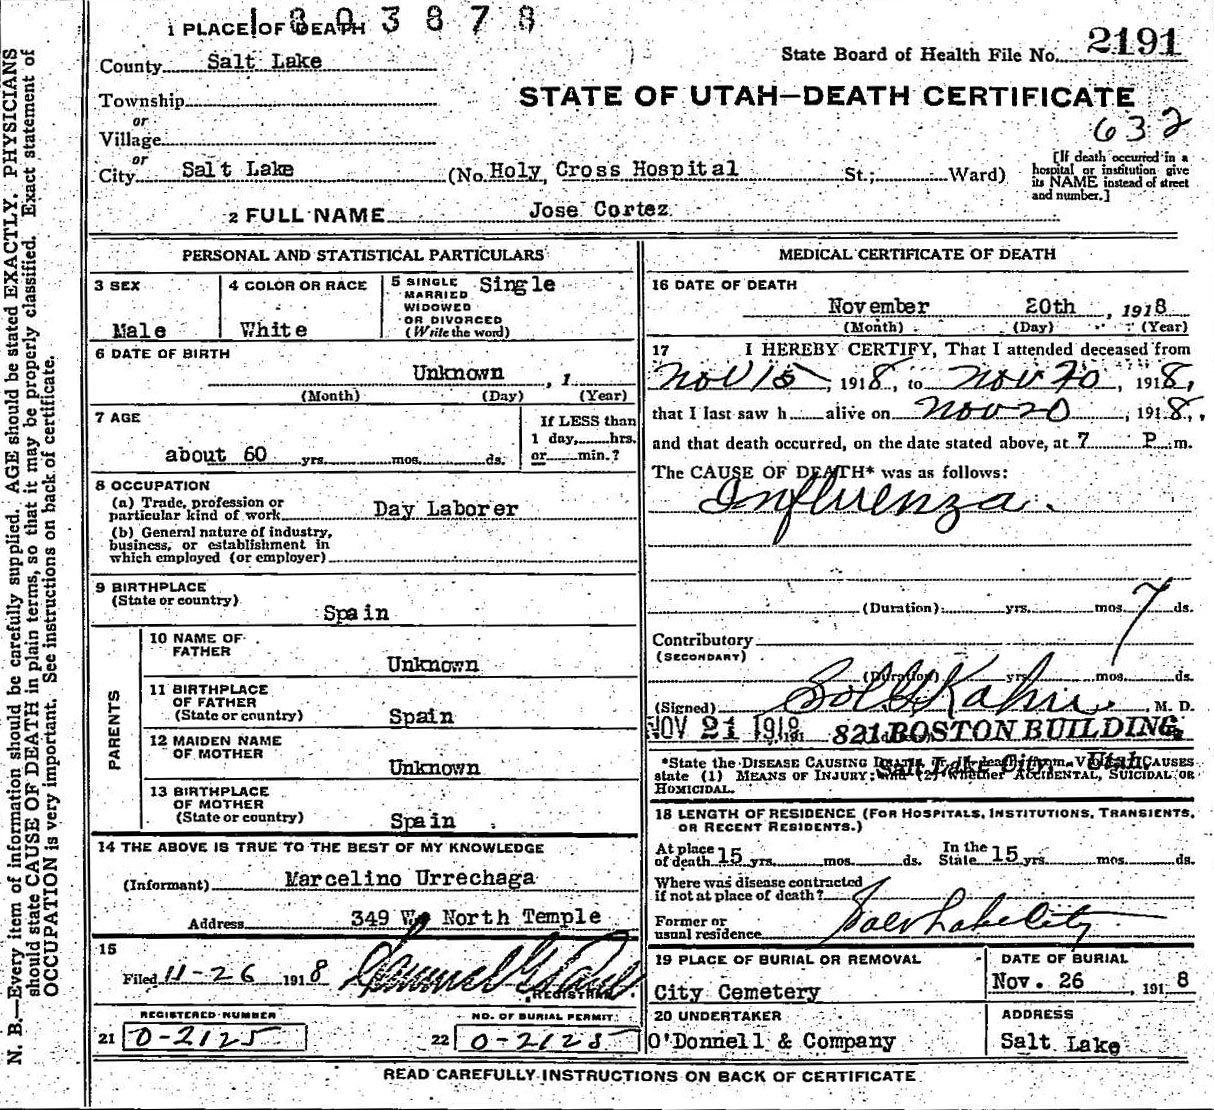 1803878
1 PLACE OF DEATH
State Board of Health File No. 2191
County Salt Lake
STATE OF UTAH—DEATH CERTIFICATE
Township
632
or
Village
or
City Salt Lake (No. Holy Cross Hospital St.; Ward)
[If death occurred in a
hospital or institution give
its NAME instead of street
and number.]
2 FULL NAME Jose Cortez
PERSONAL AND STATISTICAL PARTICULARS
3 SEX
Male
4 COLOR OR RACE
White
5 SINGLE
MARRIED
WIDOWED
OR DIVORCED
(Write the word)
Single
6 DATE OF BIRTH
Unknown , 1
(Month) (Day) (Year)
7 AGE
about 60 yrs. mos. ds.
If LESS than
1 day, hrs.
or min.?
8 OCCUPATION
(a) Trade, profession or
particular kind of work Day Laborer
(b) General nature of industry,
business, or establishment in
which employed (or employer)
9 BIRTHPLACE
(State or country)
Spain
PARENTS
10 NAME OF
FATHER
Unknown
11 BIRTHPLACE
OF FATHER
(State or country) Spain
12 MAIDEN NAME
OF MOTHER
Unknown
13 BIRTHPLACE
OF MOTHER
(State or country) Spain
14 THE ABOVE IS TRUE TO THE BEST OF MY KNOWLEDGE
(Informant) Marcelino Urrechaga
Address 349 W. North Temple
15
Filed 11-26 1918
REGISTRAR.
REGISTERED NUMBER
21 0-2125
NO. OF BURIAL PERMIT
22 0-2128
MEDICAL CERTIFICATE OF DEATH
16 DATE OF DEATH
November 20th , 1918
(Month) (Day) (Year)
17 I HEREBY CERTIFY, That I attended deceased from
Nov 15, 1918, to Nov 20, 1918,
that I last saw h alive on Nov 20, 1918,
and that death occurred, on the date stated above, at 7 P. m.
The CAUSE OF DEATH* was as follows:
Influenza.
(Duration) yrs. mos. 7 ds.
Contributory
(SECONDARY)
(Duration) yrs. mos. ds.
(Signed) Sol G Kahn, M. D.
NOV 21 1918, 191 821 BOSTON BUILDING
Salt Lake City, Utah
*State the DISEASE CAUSING DEATH, or, in deaths from VIOLENT CAUSES
state (1) MEANS OF INJURY; and (2) whether ACCIDENTAL, SUICIDAL OR
HOMICIDAL.
18 LENGTH OF RESIDENCE (FOR HOSPITALS, INSTITUTIONS, TRANSIENTS,
OR RECENT RESIDENTS.)
At place
of death 15 yrs. mos. ds.
In the
State 15 yrs. mos. ds.
Where was disease contracted
if not at place of death?
Former or
usual residence Salt Lake City
19 PLACE OF BURIAL OR REMOVAL
City Cemetery
DATE OF BURIAL
Nov. 26 , 1918
20 UNDERTAKER
O'Donnell & Company
ADDRESS
Salt Lake
READ CAREFULLY INSTRUCTIONS ON BACK OF CERTIFICATE
N. B.—Every item of information should be carefully supplied. AGE should be stated EXACTLY. PHYSICIANS
should state CAUSE OF DEATH in plain terms, so that it may be properly classified. Exact statement of
OCCUPATION is very important. See instructions on back of certificate.